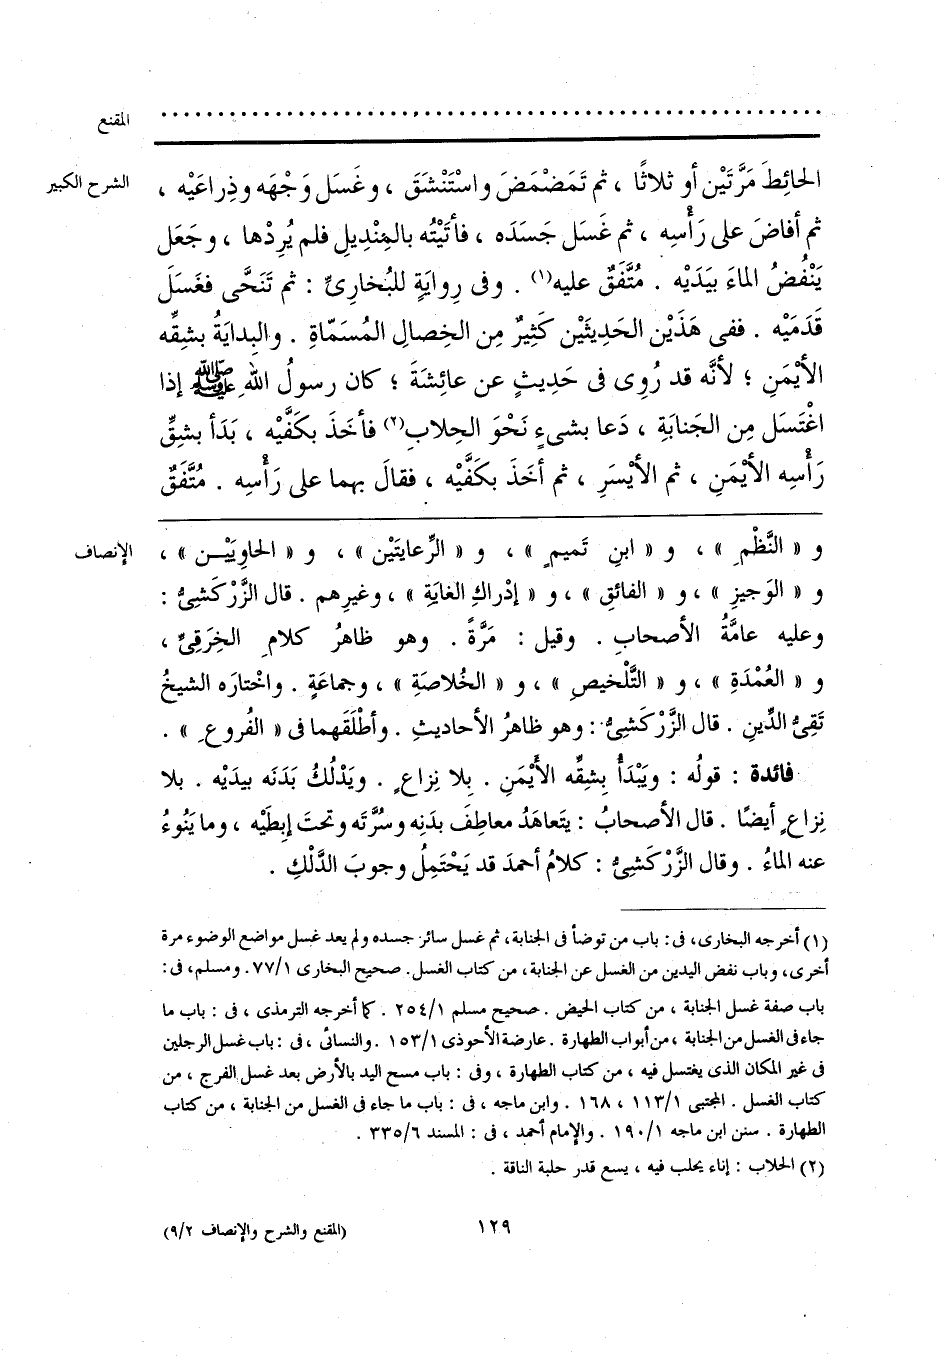 المقنع ................................................
الشرح الكبير الحائِطَ مَرَّتَيْن أو ثلاثًا ، ثم تَمَضْمَضَ واسْتَنْشَقَ ، وغَسَل وَجْهَه وذِراعَيْه ،
ثم أفاضَ على رَأْسِه ، ثم غَسَل جَسَدَه ، فأتَيْتُه بالمِنْدِيلِ فلم يُرِدْها ، وجَعَل
يَنْفُضُ الماءَ بيَدَيْه . مُتَّفَقٌ عليه(١) . وفى رِوايَةٍ للبُخارِىِّ : ثم تَنَحَّى فغَسَلَ
قَدَمَيْه . ففى هَذَيْن الحَدِيثَيْن كَثِيرٌ مِن الخِصالِ المُسَمّاةِ . والبِدايَةُ بشِقِّه
الأيْمَنِ ؛ لأنَّه قد رُوِى فى حَدِيثٍ عن عائِشَةَ ؛ كان رسولُ اللهِ ﷺ إذا
اغْتَسَل مِن الجَنابَةِ ، دَعا بشىءٍ نَحْوَ الحِلابِ(٢) فأخَذَ بكَفَّيْه ، بَدَأ بشِقِّ
رَأْسِه الأيْمَنِ ، ثم الأيْسَرِ ، ثم أخَذ بكَفَّيْه ، فقالَ بهما على رَأْسِه . مُتَّفَقٌ
الإنصاف و « النَّظْمِ » ، و « ابنِ تَميمٍ » ، و « الرِّعايتَيْن » ، و « الحاوِيَيْـن » ،
و « الوَجيزِ » ، و « الفائقِ » ، و « إدْراكِ الغايَةِ » ، وغيرِهم . قال الزَّرْكَشِىُّ :
وعليه عامَّةُ الأصحابِ . وقيل : مَرَّةً . وهو ظاهرُ كلامِ الخِرَقِىِّ ،
و « العُمْدَةِ » ، و « التَّلْخيصِ » ، و « الخُلاصَةِ » ، وجماعَةٍ . واخْتارَه الشيخُ
تَقِىُّ الدِّينِ . قال الزَّرْكَشِىُّ : وهو ظاهرُ الأحاديثِ . وأطْلَقَهما فى « الفُروعِ » .
فائدة : قولُه : ويَبْدَأُ بِشِقِّه الأيْمَنِ . بِلا نِزاعٍ . ويَدْلُكُ بَدَنَه بيدَيْه . بلا
نِزاعٍ أيضًا . قال الأصحابُ : يتَعاهَدُ معاطِفَ بدَنِه وسُرَّتَه وتحتَ إبطَيْه ، وما يَنُوءُ
عنه الماءُ . وقال الزَّرْكَشِىُّ : كلامُ أحمدَ قد يَحْتَمِلُ وجوبَ الدَّلْكِ .
(١) أخرجه البخارى ، فى : باب من توضأ فى الجنابة ، ثم غسل سائر جسده ولم يعد غسل مواضع الوضوء مرة
أخرى ، وباب نفض اليدين من الغسل عن الجنابة ، من كتاب الغسل . صحيح البخارى ٧٧/١ . ومسلم ، فى :
باب صفة غسل الجنابة ، من كتاب الحيض . صحيح مسلم ٢٥٤/١ . كما أخرجه الترمذى ، فى : باب ما
جاء فى الغسل من الجنابة ، من أبواب الطهارة . عارضة الأحوذى ١٥٣/١ . والنسائى ، فى : باب غسل الرجلين
فى غير المكان الذى يغتسل فيه ، من كتاب الطهارة ، وفى : باب مسح اليد بالأرض بعد غسل الفرج ، من
كتاب الغسل . المجتبى ١١٣/١ ، ١٦٨ . وابن ماجه ، فى : باب ما جاء فى الغسل من الجنابة ، من كتاب
الطهارة . سنن ابن ماجه ١٩٠/١ . والإمام أحمد ، فى : المسند ٣٣٥/٦ .
(٢) الحلاب : إناء يحلب فيه ، يسع قدر حلبة الناقة .
١٢٩ (المقنع والشرح والإنصاف ٩/٢)